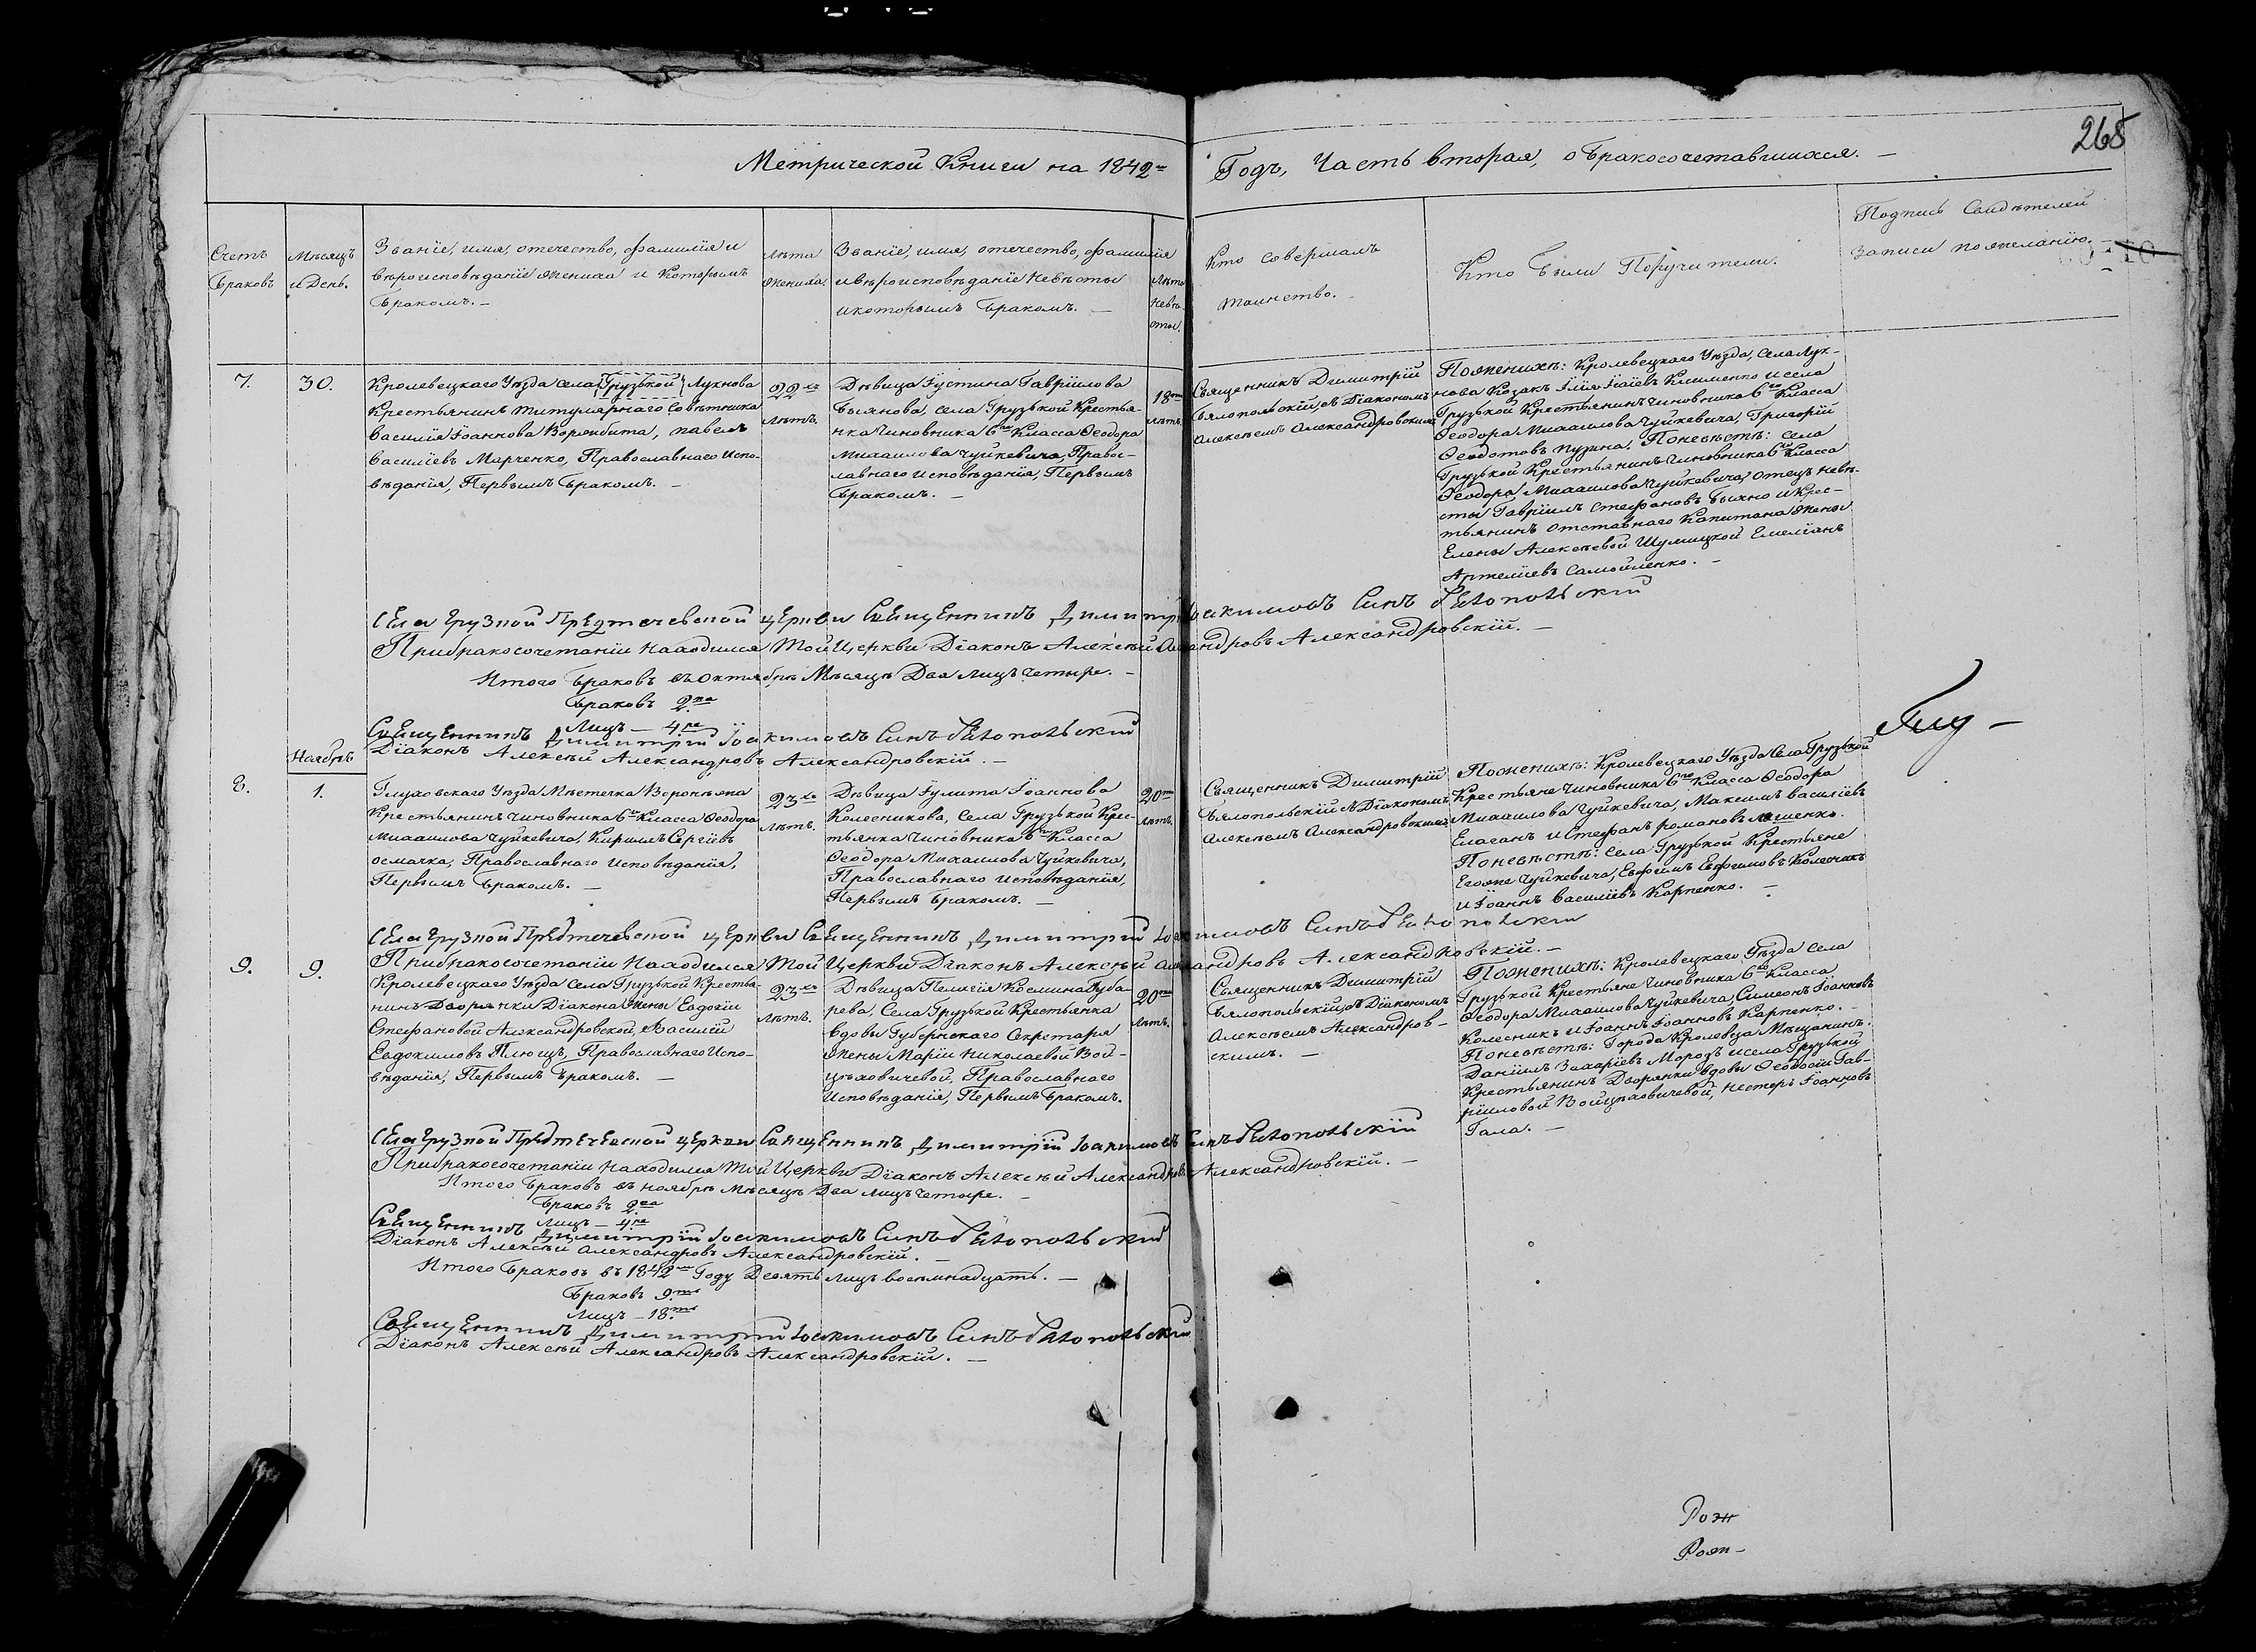 268
Метрической Книги на 1842й Годъ, Часть вторая, о бракосочетавшихся. —
Счетъ
Браковъ
Мѣсяцъ
и День.
Званіе, имя, отечество, фамилія и
вѣроисповѣданіе жениха и которымъ
бракомъ. —
Лѣта
жениха.
Званіе, имя, отечество, фамилія
и вѣроисповѣданіе невѣсты
и которымъ бракомъ. —
Лѣта
невѣ-
сты.
Кто совершалъ
таинство. —
Кто были Поручители.
Подпись Свидѣтелей
записи по желанію. —
7.
30.
Кролевецкаго Уѣзда села Грузькой Лукнова
Крестьянинъ титулярнаго Совѣтника
Василія Іоаннова Ворожбита, Павелъ
Василіевъ Марченко, Православнаго Испо-
вѣданія, Первымъ бракомъ. —
22ха
лѣтъ.
Дѣвица Іустина Гавріилова
Быянова, села Грузькой Крестья-
нка Чиновника 6го Класса Ѳеодора
Михаилова Чуйкевича, Правос-
лавнаго Исповѣданія, Первымъ
Бракомъ. —
18ти
лѣтъ.
Священникъ Димитрій
Бялопольскій съ Діакономъ
Алексѣемъ Александровскимъ
По женихѣ: Кролевецкаго Уѣзда, села Лук-
нова Козакъ Илія Исаіевъ Клименко и села
Грузькой Крестьянинъ Чиновника 6го Класса
Ѳеодора Михаилова Чуйкевича, Григорій
Ѳеодотовъ Пузина. По невѣстѣ: села
Грузькой Крестьянинъ Чиновника 6го Класса
Ѳеодора Михаилова Чуйкевича, отецъ невѣ-
сты Гавріилъ Стефановъ Быяно и Крес-
тьянинъ отставнаго Капитана жены
Елены Алексѣевой Шумицкой Емеліанъ
Артеліевъ Самойленко. —
Села Грузкой Предтечевской церкви Священникъ Димитрій Іоакимовъ Синъ Бялопольскій
При бракосочетаніи находился той Церкви Діаконъ Алексѣй Александровъ Александровскій. —
Итого браковъ въ Октябрѣ Мѣсяцѣ Два лицъ четыре. —
Браковъ 2ва
Лицъ — 4ре
Священникъ Димитрій Іоакимовъ Синъ Бялопольскій
Діаконъ Алексѣй Александровъ Александровскій. —
Ноябрь
8.
1.
Глуховскаго Уѣзда Мѣстечка Воронѣжа
Крестьянинъ Чиновника 6го Класса Ѳеодора
Михаилова Чуйкевича, Кирилъ Сергіевъ
Осмачка, Православнаго Исповѣданія,
Первымъ бракомъ. —
23ха
лѣтъ.
Дѣвица Іулита Іоаннова
Колесникова, села Грузькой Крес-
тьянка Чиновника 6го Класса
Ѳеодора Михаилова Чуйкевича,
Православнаго Исповѣданія,
Первымъ Бракомъ. —
20ти
лѣтъ.
Священникъ Димитрій
Бялопольскій съ Діакономъ
Алексѣемъ Александровскимъ
По женихѣ: Кролевецкаго Уѣзда Села Грузькой
Крестьяне Чиновника 6го Класса Ѳеодора
Михаилова Чуйкевича, Максимъ Василіевъ
и Стефанъ Романовъ
По невѣстѣ: села Грузькой Крестьяне
Егожъ Чуйкевича, Евфимъ Евфимовъ Колесникъ
и Іоаннъ Василіевъ Карпенко. —
Села Грузкой Предтечевской церкви Священникъ Димитрій Іоакимовъ Синъ Бялопольскій
При бракосочетаніи находился той Церкви Діаконъ Алексѣй Александровъ Александровскій. —
9.
9.
Кролевецкаго Уѣзда Села Грузькой Крестья-
нинъ Дворянки Діакона жены Евдокіи
Стефановой Александровской, Василій
Евдокимовъ Плющъ, Православнаго Испо-
вѣданія, Первымъ бракомъ. —
23ха
лѣтъ.
Дѣвица Пелагія Космина
рева, Села Грузькой Крестьянка
вдовы Губернскаго Секретаря
жены Маріи Николаевой Вой-
цѣховичевой, Православнаго
Исповѣданія, Первымъ бракомъ.
20ти
лѣтъ.
Священникъ Димитрій
Бялопольскій съ Діакономъ
Алексѣемъ Александров-
скимъ. —
По женихѣ: Кролевецкаго Уѣзда села
Грузькой Крестьяне Чиновника 6го Класса
Ѳеодора Михаилова Чуйкевича, Симеонъ Іоанновъ
Колесникъ и Іоаннъ Іоанновъ Карпенко. —
По невѣстѣ: Города Кролевца Мѣщанинъ
Даніилъ Захаріевъ Морозъ и села Грузькой
Крестьянинъ Дворянки вдовы Ѳеодосіи Гав-
ріиловой Войцѣховичевой, Несторъ Іоанновъ
Гала. —
Села Грузкой Предтечевской церкви Священникъ Димитрій Іоакимовъ Синъ Бялопольскій
При бракосочетаніи находился той Церкви Діаконъ Алексѣй Александровъ Александровскій. —
Итого браковъ въ Ноябрѣ Мѣсяцѣ Два лицъ четыре. —
Браковъ 2ва
Лицъ — 4ре
Священникъ Димитрій Іоакимовъ Синъ Бялопольскій
Діаконъ Алексѣй Александровъ Александровскій. —
Итого браковъ въ 1842мъ Году Девять лицъ восемнадцать. —
Браковъ 9ть
Лицъ — 18ть
Священникъ Димитрій Іоакимовъ Синъ Бялопольскій
Діаконъ Алексѣй Александровъ Александровскій. —